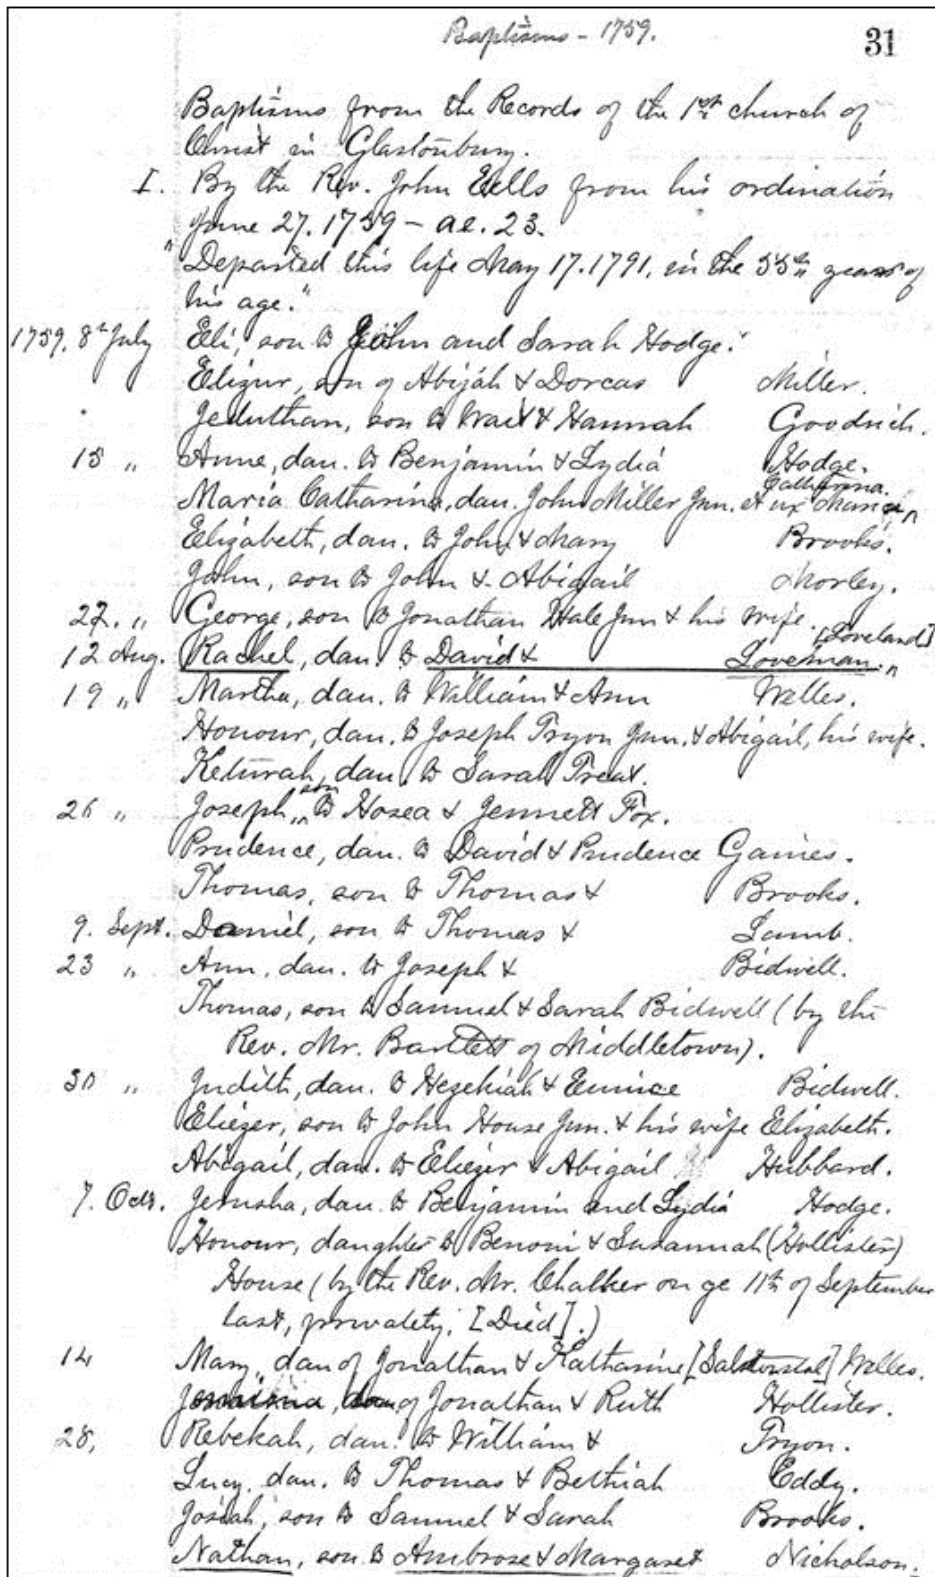 Baptisms - 1759.
31
Baptisms from the Records of the 1st church of
Christ in Glastonbury.
I. By the Rev. John Eells from his ordination
June 27. 1759 - ae. 23.
"Departed this life May 17. 1791. in the 55th year of
his age."
1759. 8th July Eli, son to John and Sarah Hodge.
Elizur, son of Abijah & Dorcas Miller.
Jeduthan, son to Wait & Hannah Goodrich.
15 " Anne, dan. to Benjamin & Lydia Hodge.
Catharina.
Maria Catharina, dan. John Miller Jun. et ux Maria
Elizabeth, dan. to John & Mary Brooks.
John, son to John & Abigail Morley.
22. " George, son to Jonathan Hale Jun & his wife.
[Loveland]
12 Aug. Rachel, dan. to David & Loveman. "
19 " Martha, dan. to William & Ann Welles.
Honour, dan. to Joseph Tryon Jun. & Abigail, his wife.
Keturah, dan. to Sarah Treat.
26 " Joseph, son to Hosea & Jennett Fox.
Prudence, dan. to David & Prudence Gaines.
Thomas, son to Thomas & Brooks.
9. Sept. Daniel, son to Thomas & Lamb.
23 " Ann, dan. to Joseph & Bidwell.
Thomas, son to Samuel & Sarah Bidwell (by the
Rev. Mr. Bartlett of Middletown).
30 " Judith, dan. to Hezekiah & Eunice Bidwell.
Eliezer, son to John House Jun. & his wife Elizabeth.
Abigail, dan. to Eliezer & Abigail Hubbard.
7. Oct. Jerusha, dan. to Benjamin and Lydia Hodge.
Honour, daughter to Benoni & Susannah (Hollister)
House (by the Rev. Mr. Chalker on ye 11th of September
last, privately, [Died].)
14 Mary, dan of Jonathan & Katharine [Salstonstal] Welles.
Jemima, dau of Jonathan & Ruth Hollister.
28, Rebekah, dan. to William & Tryon.
Lucy, dan. to Thomas & Bethiah Eddy.
Josiah, son to Samuel & Sarah Brooks.
Nathan, son to Ambrose & Margaret Nicholson.